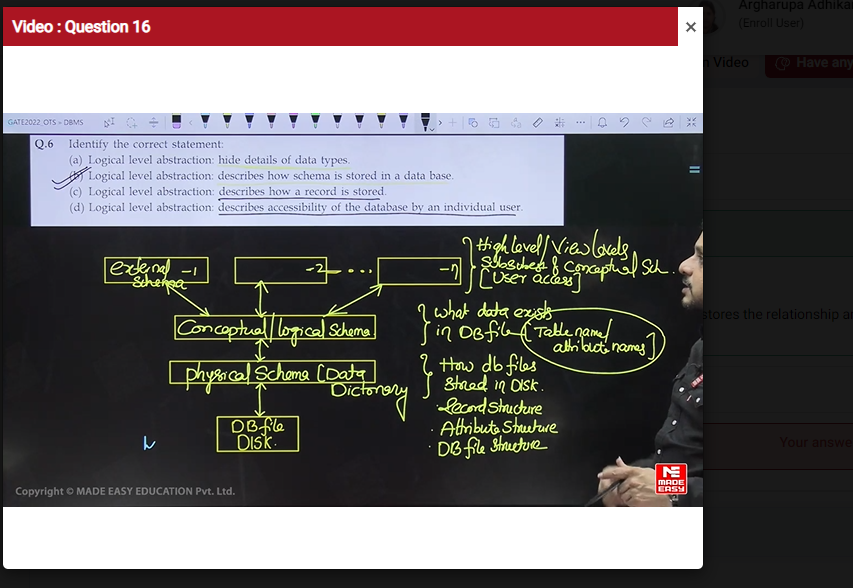 Video : Question 16
×
Argharupa Adhika
(Enroll User)
n Video
Have any
GATE2022_OTS – DBMS
Q.6 Identify the correct statement:
(a) Logical level abstraction: hide details of data types.
(b) Logical level abstraction: describes how schema is stored in a data base.
(c) Logical level abstraction: describes how a record is stored.
(d) Logical level abstraction: describes accessibility of the database by an individual user.
external -1
Schema
-2
-n
High level / View levels
Subsubset of Conceptual Sch.
[User access]
Conceptual / logical Schema
what data exists
in DB file [Table name/
attribute names]
physical Schema (Data
Dictonory
How db files
Stored in DISK.
· Record Structure
· Attribute Structure
· DB file Structure
DB file
DISK.
stores the relationship a
Your answe
Copyright © MADE EASY EDUCATION Pvt. Ltd.
ME
MADE
EASY